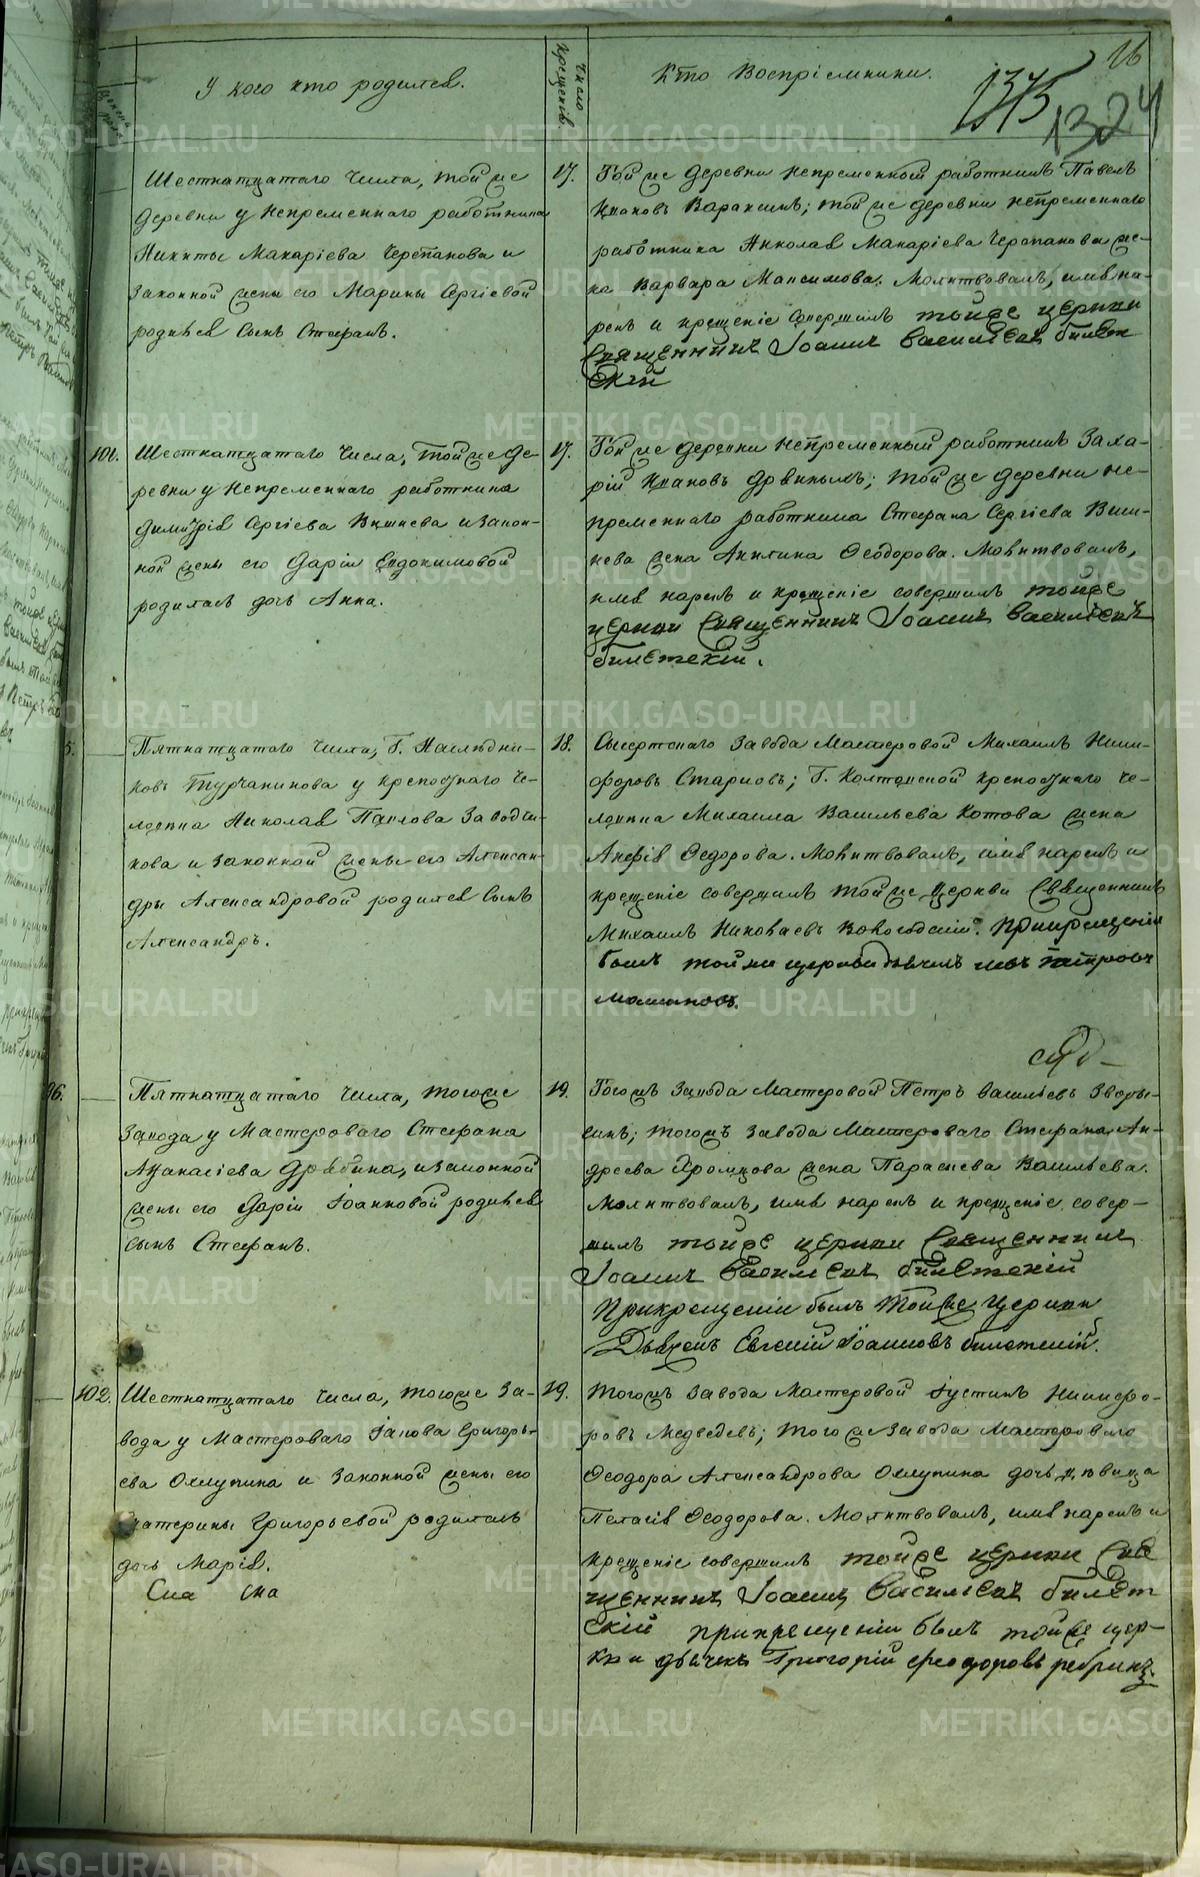 У кого кто родился.
Число крещенія.
Кто Воспріемники.
26
1315
1324
Шестнатцатаго Числа, той же
деревни у Непременнаго работника
Никиты Макаріева Черепанова и
законной жены его Марины Сергіевой
родился Сынъ Стефанъ.
17.
Той же деревни непременный работникъ Павелъ
Ивановъ Вараксинъ; той же деревни непременнаго
работника Николая Макаріева Черепанова же-
на Варвара Максимова. Молитвовалъ, имя на-
рекъ и крещеніе совершилъ тойже церкви
Священникъ Іоаннъ Васильевъ билет
скій
101.
Шестнатцатаго Числа, той же де-
ревни у Непременнаго работника
Димитрія Сергіева Вишнева и закон-
ной жены его Даріи Евдокимовой
родилась дочь Анна.
17.
Той же деревни Непременный работникъ Заха-
рій Ивановъ ; той же деревни не-
пременнаго работника Стефана Сергіева Виш-
нева жена Акилина Феодорова. Молитвовалъ,
имя нарекъ и крещеніе совершилъ тойже
церкви Священникъ Іоаннъ Васильевъ
билетскій.
5.
Пятнатцатаго Числа, Г. Наследни-
ковъ Турчанинова у крепостнаго че-
ловека Николая Павлова Заводчи-
кова и законной жены его Алексан-
дры Александровой родился Сынъ
Александръ.
18.
Сысертскаго Завода Мастеровой Михаилъ Ники-
форовъ Старковъ; Г. Колтовской крепостнаго че-
ловека Михаила Васильева Котова жена
Анфія Федорова. Молитвовалъ, имя нарекъ и
крещеніе совершилъ той же церкви Священникъ
Михаилъ Николаевъ . Прикрещеніи
былъ той же церкви петровъ
96.
Пятнатцатаго Числа, тогоже
Завода у Мастероваго Стефана
Афанасіева Дрябина, и законной
жены его Даріи Іоанновой родился
сынъ Стефанъ.
19.
Тогожъ Завода Мастеровой Петръ Васильевъ Зверы-
; тогожъ завода Мастероваго Стефана Ан-
дреева Хромцова жена Параскева Васильева.
Молитвовалъ, имя нарекъ и крещеніе совер-
шилъ тойже церкви Священникъ
Іоаннъ Васильевъ билетскій
Прикрещеніи былъ Тойже Церкви
Дьячекъ Евгеній Іоанновъ билетскій.
102.
Шестнатцатаго Числа, тогоже За-
вода у Мастероваго Іакова Григорь-
ева Охлупина и Законной жены его
Екатерины Григорьевой родилась
дочь Марія.
19.
Тогожъ Завода Мастеровой Іустинъ Никифо-
ровъ Медведевъ; того же Завода Мастероваго
Феодора Александрова Охлупина дочь девица
Пелагія Феодорова. Молитвовалъ, имя нарекъ и
крещеніе совершилъ тойже церкви Свя
щенникъ Іоаннъ Васильевъ билет
скій прикрещеніи былъ тойже цер-
кви дьячекъ Григорій феодоровъ ребринъ.
METRIKI.GASO-URAL.RU